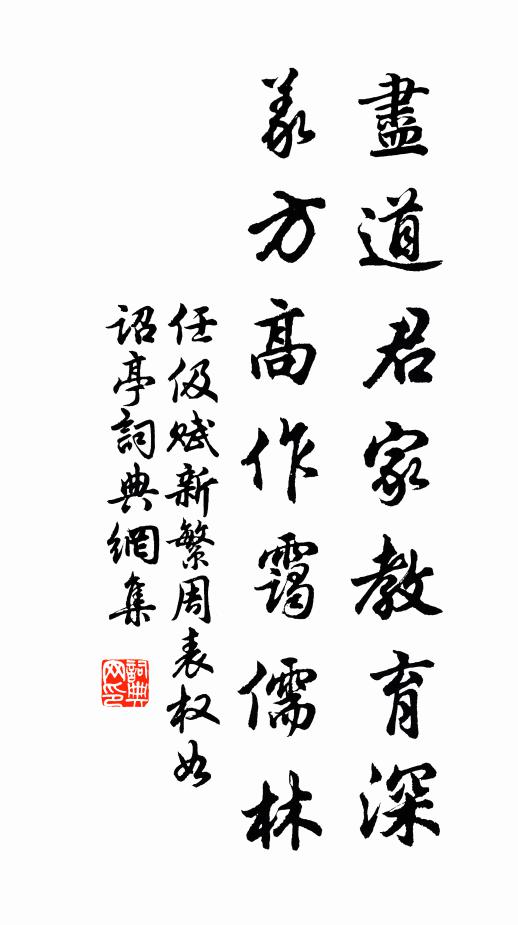 盡道君家教育深
義方高作靄儒林
任伋賦新繁周表权如
詔亭詞典網集
詞典网印